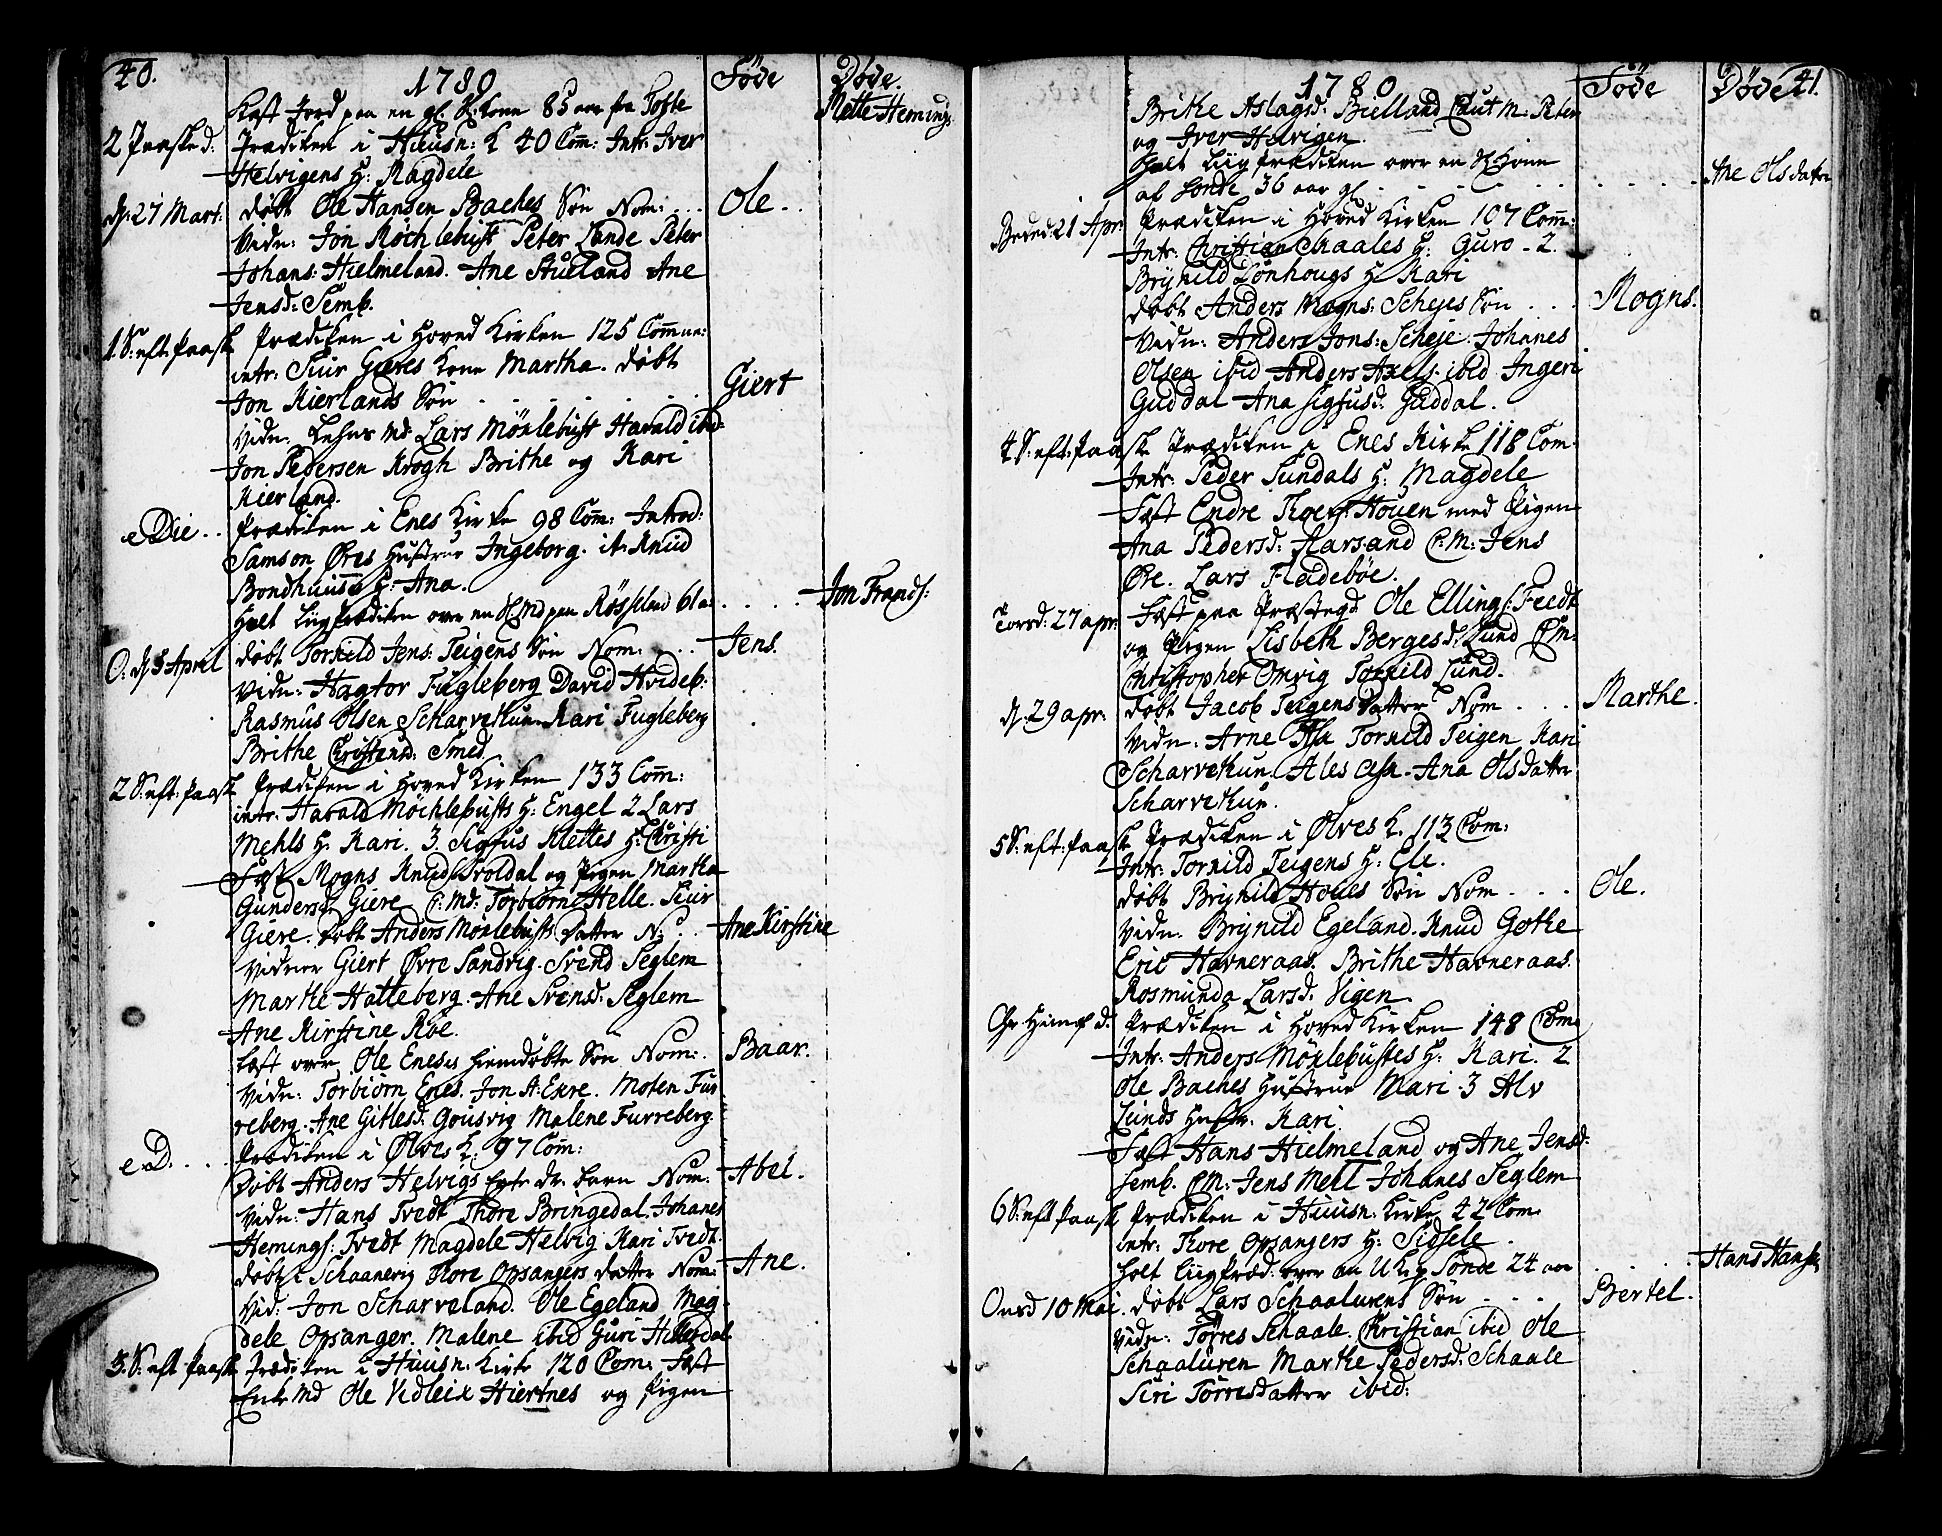 40.
1780
Føde
Døde.
Kast Jord paa en gl. Kone 85 aar fra Tofte
Mette Heming:
2 Paaske d. Prædiken i Huusn: K 40 Com: Intr: Iver
Helvigens H: Magdele
d. 27 Mart. døbt Ole Hansen Baches Søn Nom: ...
Ole.
Vidn: Jon Røchlebust Peter Lande Peter
Johans: Hielmeland. Ane Stueland Ane
Jensd: Semb.
1 S: eft: Paask Prædiken i Hoved Kirken 125 Comm:
intr: Siur Gieres Kone Martha. døbt
Jon Kierlands Søn . . . . . .
Giert
Vidn: Lehns Md: Lars Møklebust Harald ibd:
Jon Pedersen Krogh Brithe og Kari
Kierland.
e Die .. Prædiken i Enes Kirke 98 Com: Introd:
Samson Øres Hustrue Ingeborg. it: Knud
Bondhuus H: Ana.
Holt Liigprædiken over en Md paa Røsseland 61 a: . . . .
Jon Frands:
O: d. 5 April døbt Torkild Jens: Teigens Søn Nom: ...
Jens.
Vidn: Hagtor Fugleberg David Hvideb:
Rasmus Olsen Scharvetun Kari Fugleberg
Brithe Christend: Smed.
2 S: eft: Paask Prædiken i Hoved Kirken 133 Com:
intr: Harald Møchlebusts H: Engel 2 Lars
Mehls H: Kari. 3. Sigfus Klettes H: Christi
Fæst Mogns Knuds: Svoldal og Pigen Martha
Gundersd: Giere C: Md: Torbiørn Helle. Siur
Giere. døbt Anders Møklebusts Datter N: ..
Ane Kirstine
Vidner Giert Øvre Sandvig. Svend Seglem
Marthe Hatteberg. Ane Svensd: Seglem
Ane Kirstine Røe.
Læst over Ole Eneses hiemdøbte Søn Nom:.
Baar.
Vidn: Torbiørn Enes. Jon A: Exre. Moten Fur
reberg. Ane Gitlesd: Gousvig Malene Furreberg.
e D. . . . Prædiken i Ølves K. 97 Com:
Døbt Anders Helvigs barn Nom.
Abel.
Vidn: Hans Tvedt Thore Bringedal. Johanes
Hemings: Tvedt Magdele Helvig Kari Tvedt.
døbt i Schaanevig Thore Opsangers datter Nom:
Ane.
Vid: Jon Scharveland. Ole Egeland Mag
dele Opsanger. Malene ibid Guri Hellesdal
3. S: eft Paask Prædiken i Huusn: Kirke 120 Com: Fæst
Enke Md Ole Vedleix Hiertnes og Pigen
1780
Føde
Døde
41.
Brithe Aslagsd: Bielland Caut M: Peter
og Iver Helvigen.
Holt Liig prædiken over en Kone
af Sonde 36 aar gl. . . . . . . . . . .
Ane Olsdatter
Beded 21 Apr: Prædiken i Hoved Kirken 107 Com:
Intr: Christian Schaales H: Guro - 2.
Brynild Lønhougs H Kari
døbt Anders Mogns: Schejes Søn . . . .
Mogns.
Vidn: Anders Jons: Scheje. Johanes
Olsen ibid Anders Axels: ibid Ingeri
Guddal Ana Sigfusd: Guddal.
4 S: eft: Paask Prædiken i Enes Kirke 118 Com:
Intr: Peder Sundals H: Magdele
Fæst Endre Houen med Pigen
Ana Pedersd: Karsand C: M: Jens
Øre. Lars Fladebøe.
Torsd: 27 apr: Fæst paa Præstegd: Ole Ellings: Feedt
og Pigen Lisbeth Bergesd: Lund C M:
Christopher Omvig Torkild Lund.
d. 29 apr: døbt Jacob Teigens Datter Nom . . .
Marthe.
Vidn: Arne Asa Torkild Teigen Kari
Scharvetun. Ales Asa. Ana Olsdatter
Scharvetun.
5 S: eft: Paask Prædiken i Ølves K. 113 Com:
Intr: Torkild Teigens H: Ele.
døbt Brynild Houes Søn Nom . . . .
Ole.
Vidn: Brynild Egeland. Knud Gothe
Eric Havneraas. Brithe Havneraas.
Rosmunda Larsd: Vigen
Chr Himf d. Prædiken i Hoved Kirken 148 Com
Intr: Anders Møklebustes H: Kari. 2
Ole Baches Hustrue Mari. 3 Alv
Lunds Hustr: Kari.
Fæst Hans Hielmeland og Ane Jensd:
Semb. C M: Jens Mehl Johanes Seglem
6 S: eft Paask Prædiken i Huusn: Kirke 42 Com
intr: Thore Opsangers H: Sidsele .
Holt Liigpræd: over en U K: p Sonde 24 aar . . . .
Hans Hans:
Onsd 10 Mai. døbt Lars Schaalurens Søn . . .
Bertel.
Vidn: Tørres Schaale. Christian ibid Ole
Schaaluren Marthe Pedersd: Schaale
Siri Tørresdatter ibid: